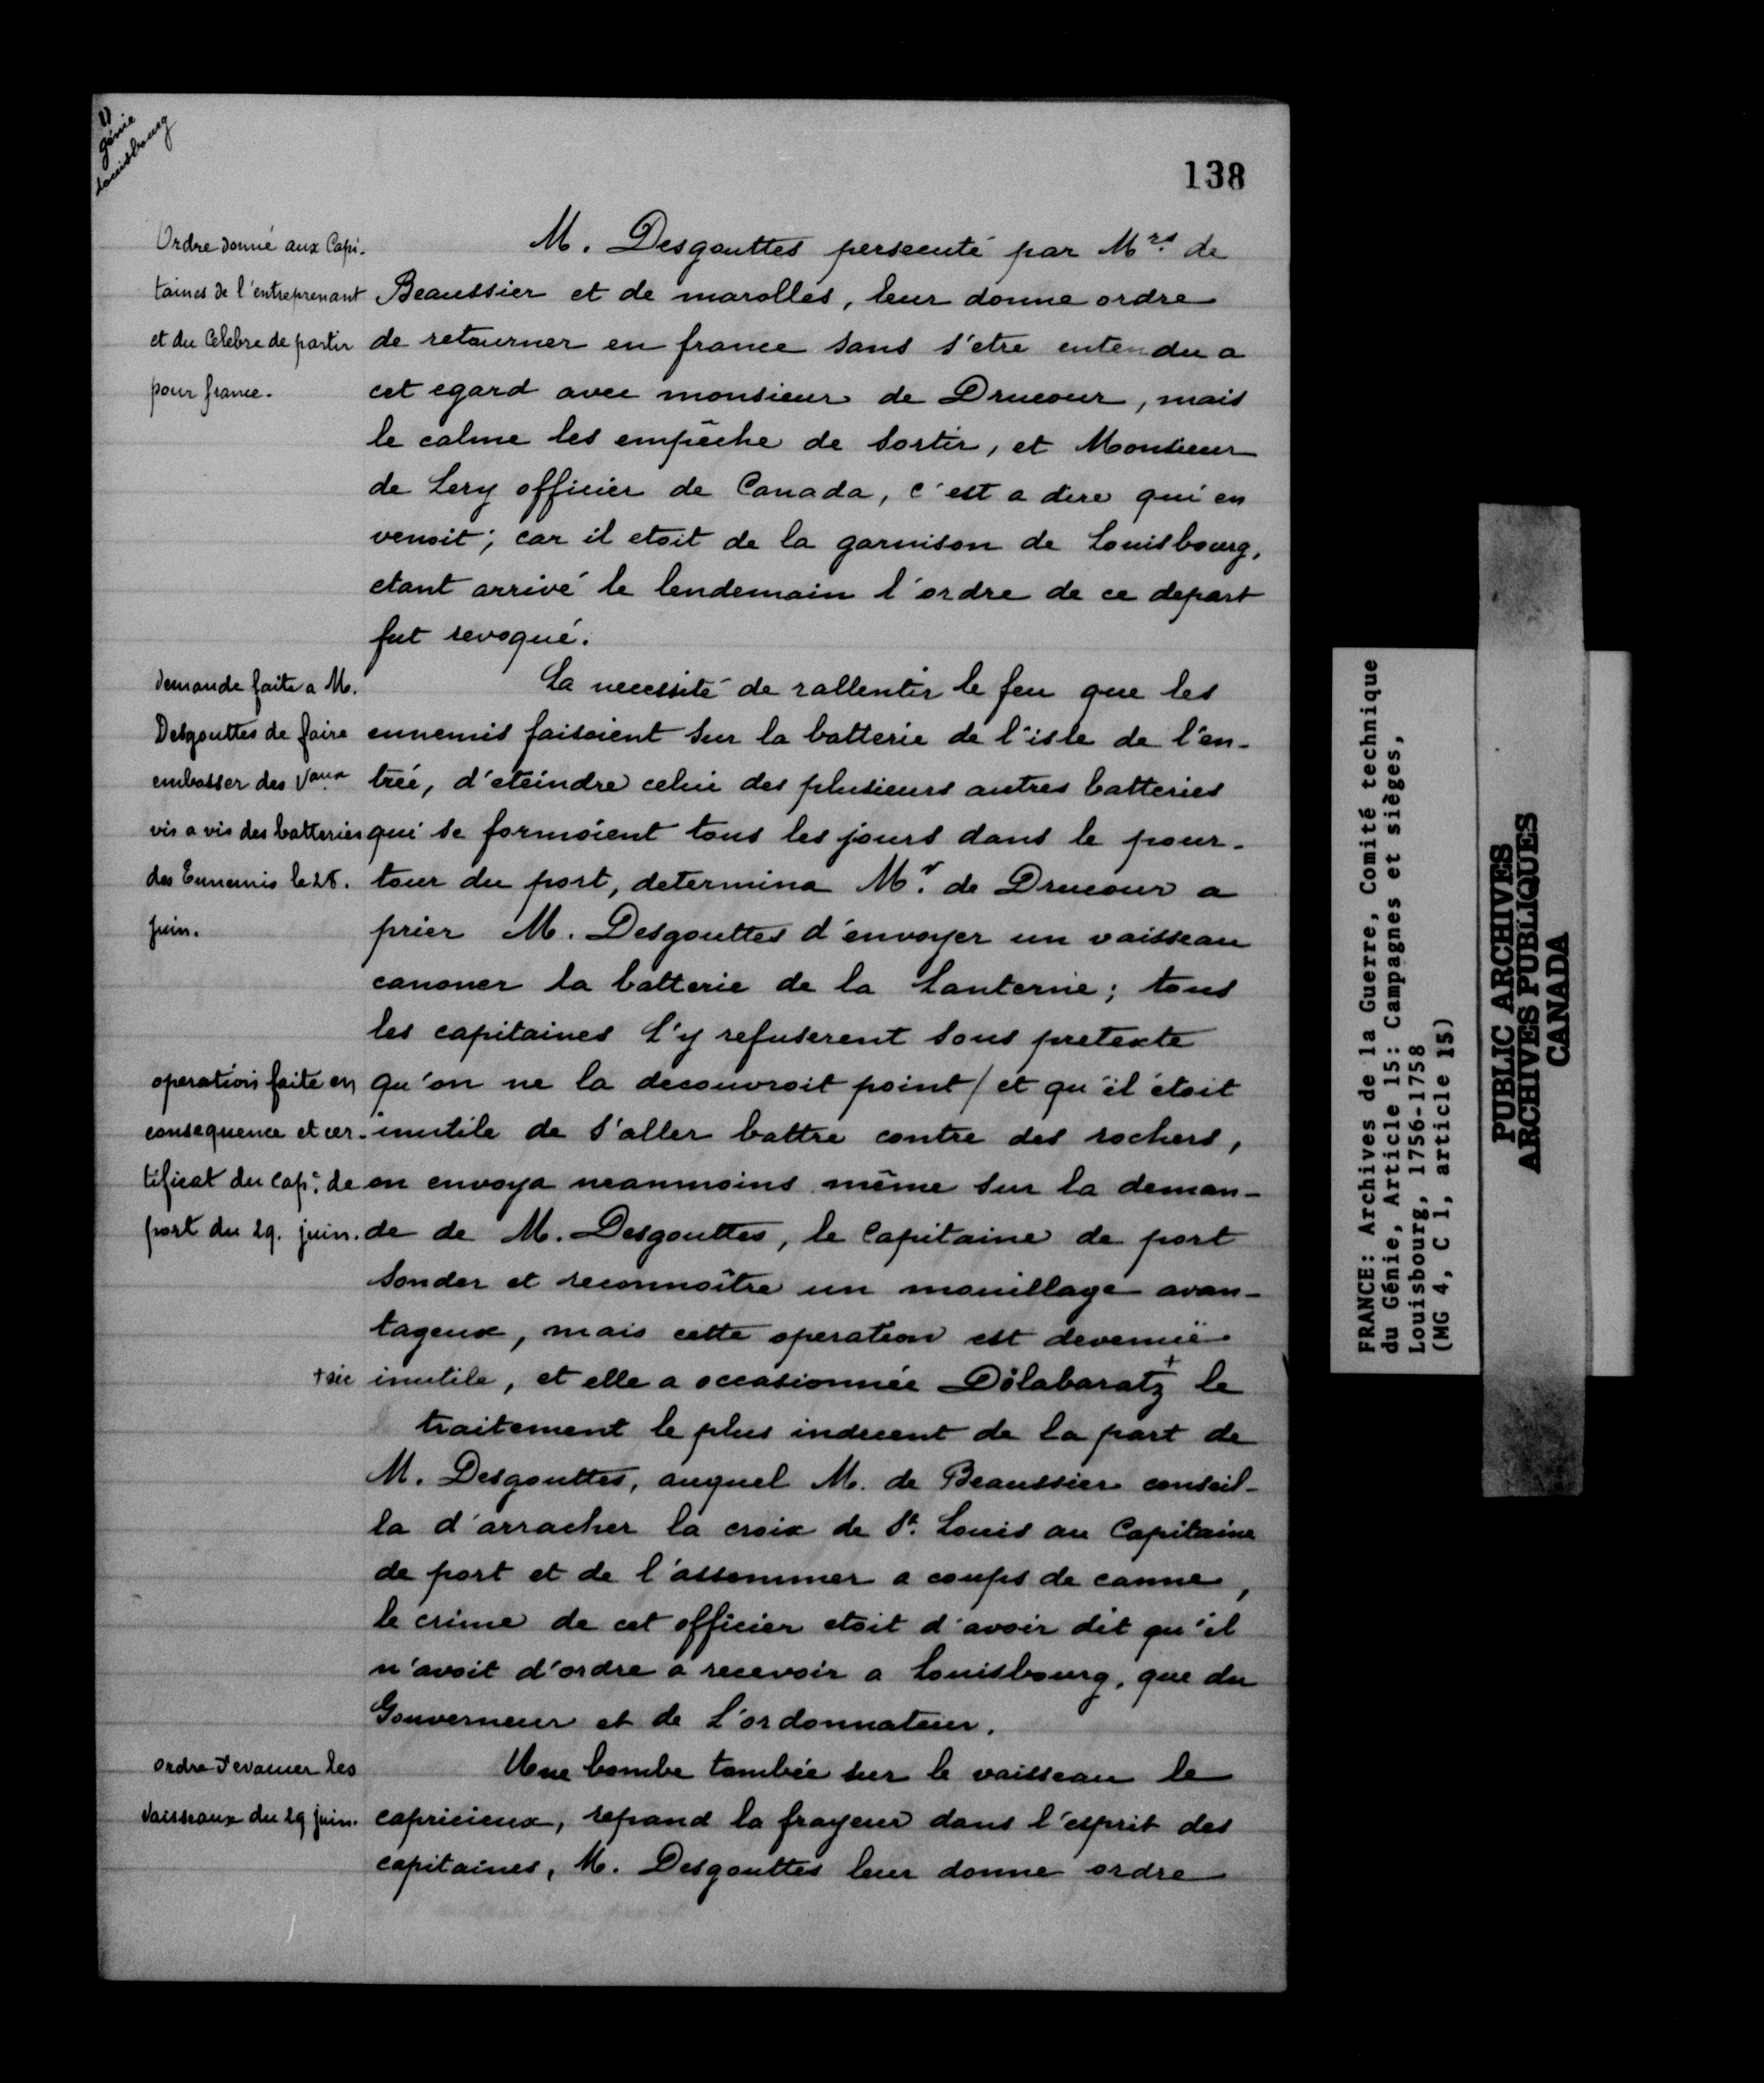 1)
génie
Louisbourg
138
Ordre donné aux Capi-
taines de l'entreprenant
et du Célebre de partir
pour france.
M. Desgouttes persecuté par Mrs. de
Beaussier et de marolles, leur donne ordre
de retourner en france sans s'etre entendu a
cet egard avec monsieur de Drucour, mais
le calme les empêche de sortir, et Monsieur
de Lery officier de Canada, c'est a dire qui en
venoit; car il etoit de la garnison de Louisbourg,
etant arrivé le lendemain l'ordre de ce depart
fut revoqué.
demande faite a M.
Desgouttes de faire
embosser des Vaux
vis a vis des batteries
des Ennemis le 28.
juin.
La necessité de rallentir le feu que les
ennemis faisoient sur la batterie de l'isle de l'en-
trée, d'eteindre celui des plusieurs autres batteries
qui se formoient tous les jours dans le pour-
tour du port, determina Mr. de Drucour a
prier M. Desgouttes d'envoyer un vaisseau
canoner la batterie de la Lanterne; tous
les capitaines s'y refuserent sous pretexte
operation faite en
consequence et cer-
tificat du Cap: de
port du 29. juin.
qu'on ne la decouvroit point / et qu'il étoit
inutile de s'aller battre contre des rochers,
on envoya neanmoins même sur la deman-
de de M. Desgouttes, le Capitaine de port
sonder et reconnoître un mouillage avan-
tageux, mais cette operation est devenuë
+ sic
inutile, et elle a occasionnée Dolabaratz + le
traitement le plus indecent de la part de
M. Desgouttes, auquel M. de Beaussier conseil-
la d'arracher la croix de St. Louis au Capitaine
de port et de l'assommer a coups de canne,
le crime de cet officier etoit d'avoir dit qu'il
n'avoit d'ordre a recevoir a Louisbourg, que du
Gouverneur et de L'ordonnateur.
ordre d'evacuer les
Vaisseaux du 29 juin.
Une bombe tombée sur le vaisseau le
capricieux, repand la frayeur dans l'esprit des
capitaines, M. Desgouttes leur donne ordre
FRANCE: Archives de la Guerre, Comité technique
du Génie, Article 15: Campagnes et sièges,
Louisbourg, 1756-1758
(MG 4, C 1, article 15)
PUBLIC ARCHIVES
ARCHIVES PUBLIQUES
CANADA